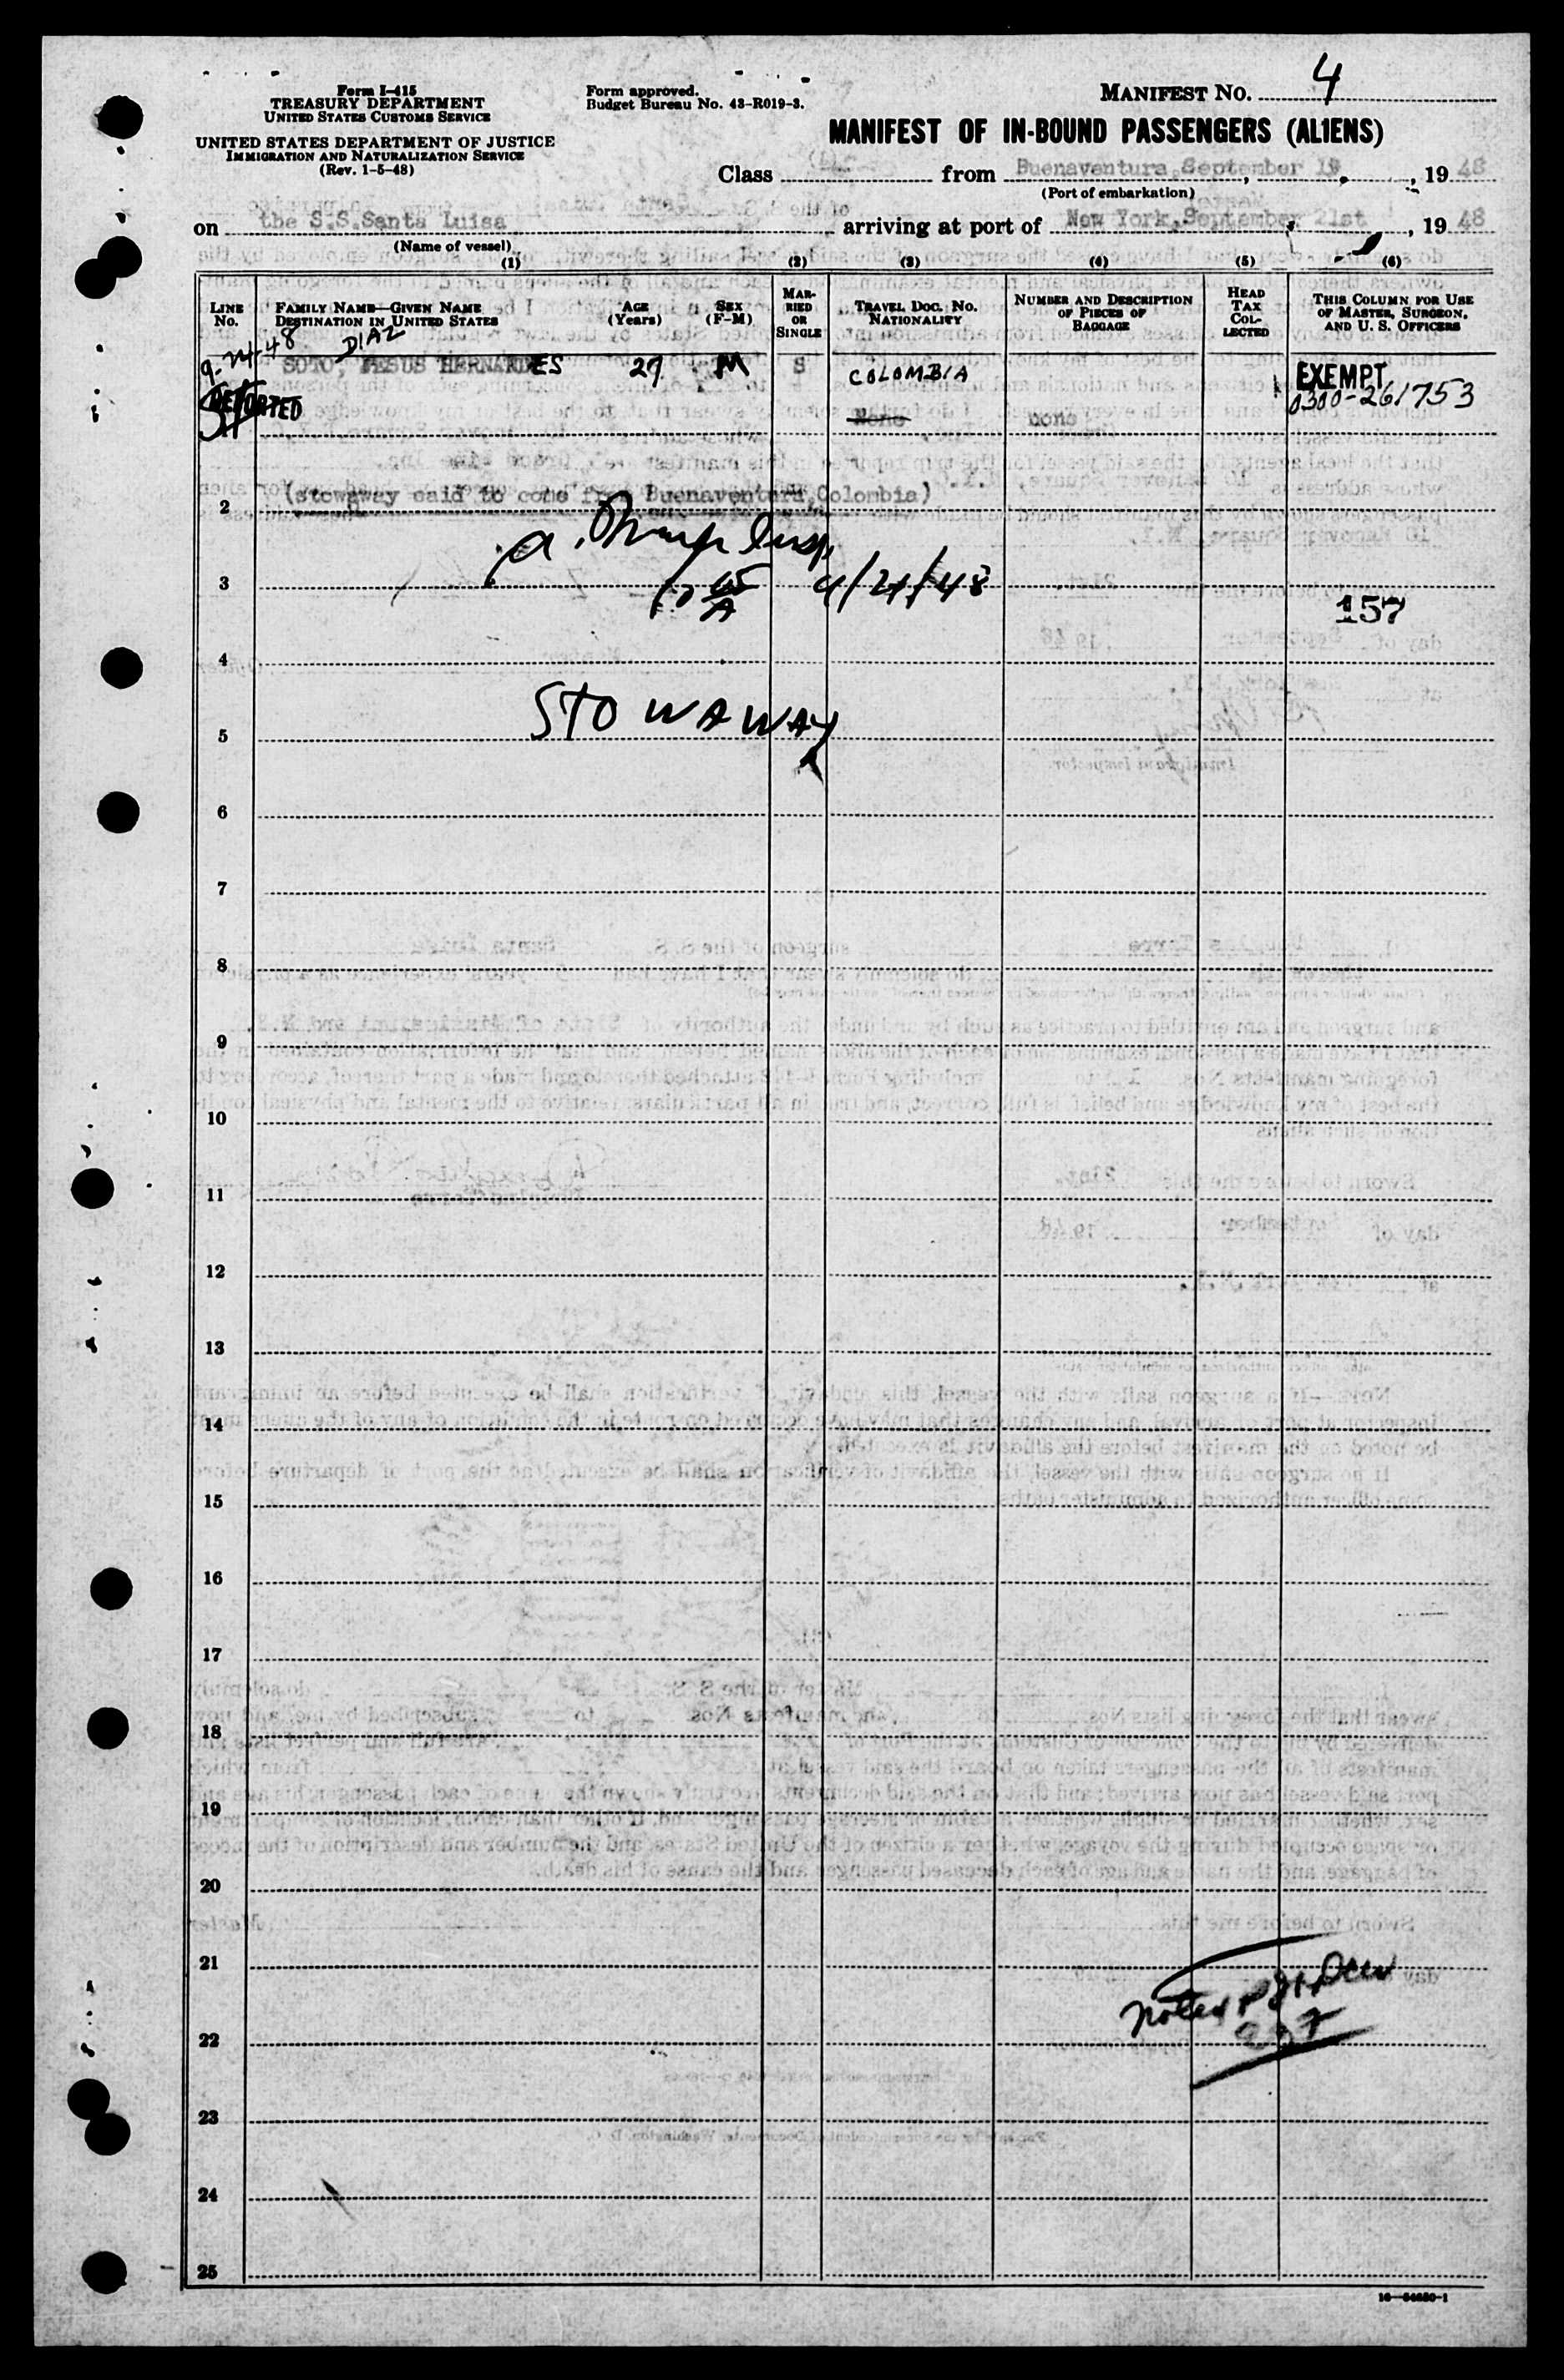 Form I-415
TREASURY DEPARTMENT
UNITED STATES CUSTOMS SERVICE
UNITED STATES DEPARTMENT OF JUSTICE
IMMIGRATION AND NATURALIZATION SERVICE
(Rev. 1-5-48)
Form approved.
Budget Bureau No. 43-R019-3.
MANIFEST NO. 4
MANIFEST OF IN-BOUND PASSENGERS (ALIENS)
Class from Buenaventura, September 19, 1948
(Port of embarkation)
on the S.S. Santa Luisa arriving at port of New York, September 21st, 1948
(Name of vessel)
(1) (2) (3) (4) (5) (6)
LINE No.
FAMILY NAME—GIVEN NAME
DESTINATION IN UNITED STATES
AGE (Years)
SEX (F-M)
MARRIED OR SINGLE
TRAVEL DOC. No.
NATIONALITY
NUMBER AND DESCRIPTION OF PIECES OF BAGGAGE
HEAD TAX COLLECTED
THIS COLUMN FOR USE OF MASTER, SURGEON, AND U. S. OFFICERS
9-24-48 DIAZ
SOTO, JESUS HERNANDES 29 M S COLOMBIA EXEMPT
DEPORTED None none 0300-261753
2 (stowaway said to come from Buenaventura, Colombia)
a. Insp.
3 10 45/A 9/21/48
157
4
STOWAWAY
5
6
7
8
9
10
11
12
13
14
15
16
17
18
19
20
21
22
23
24
25